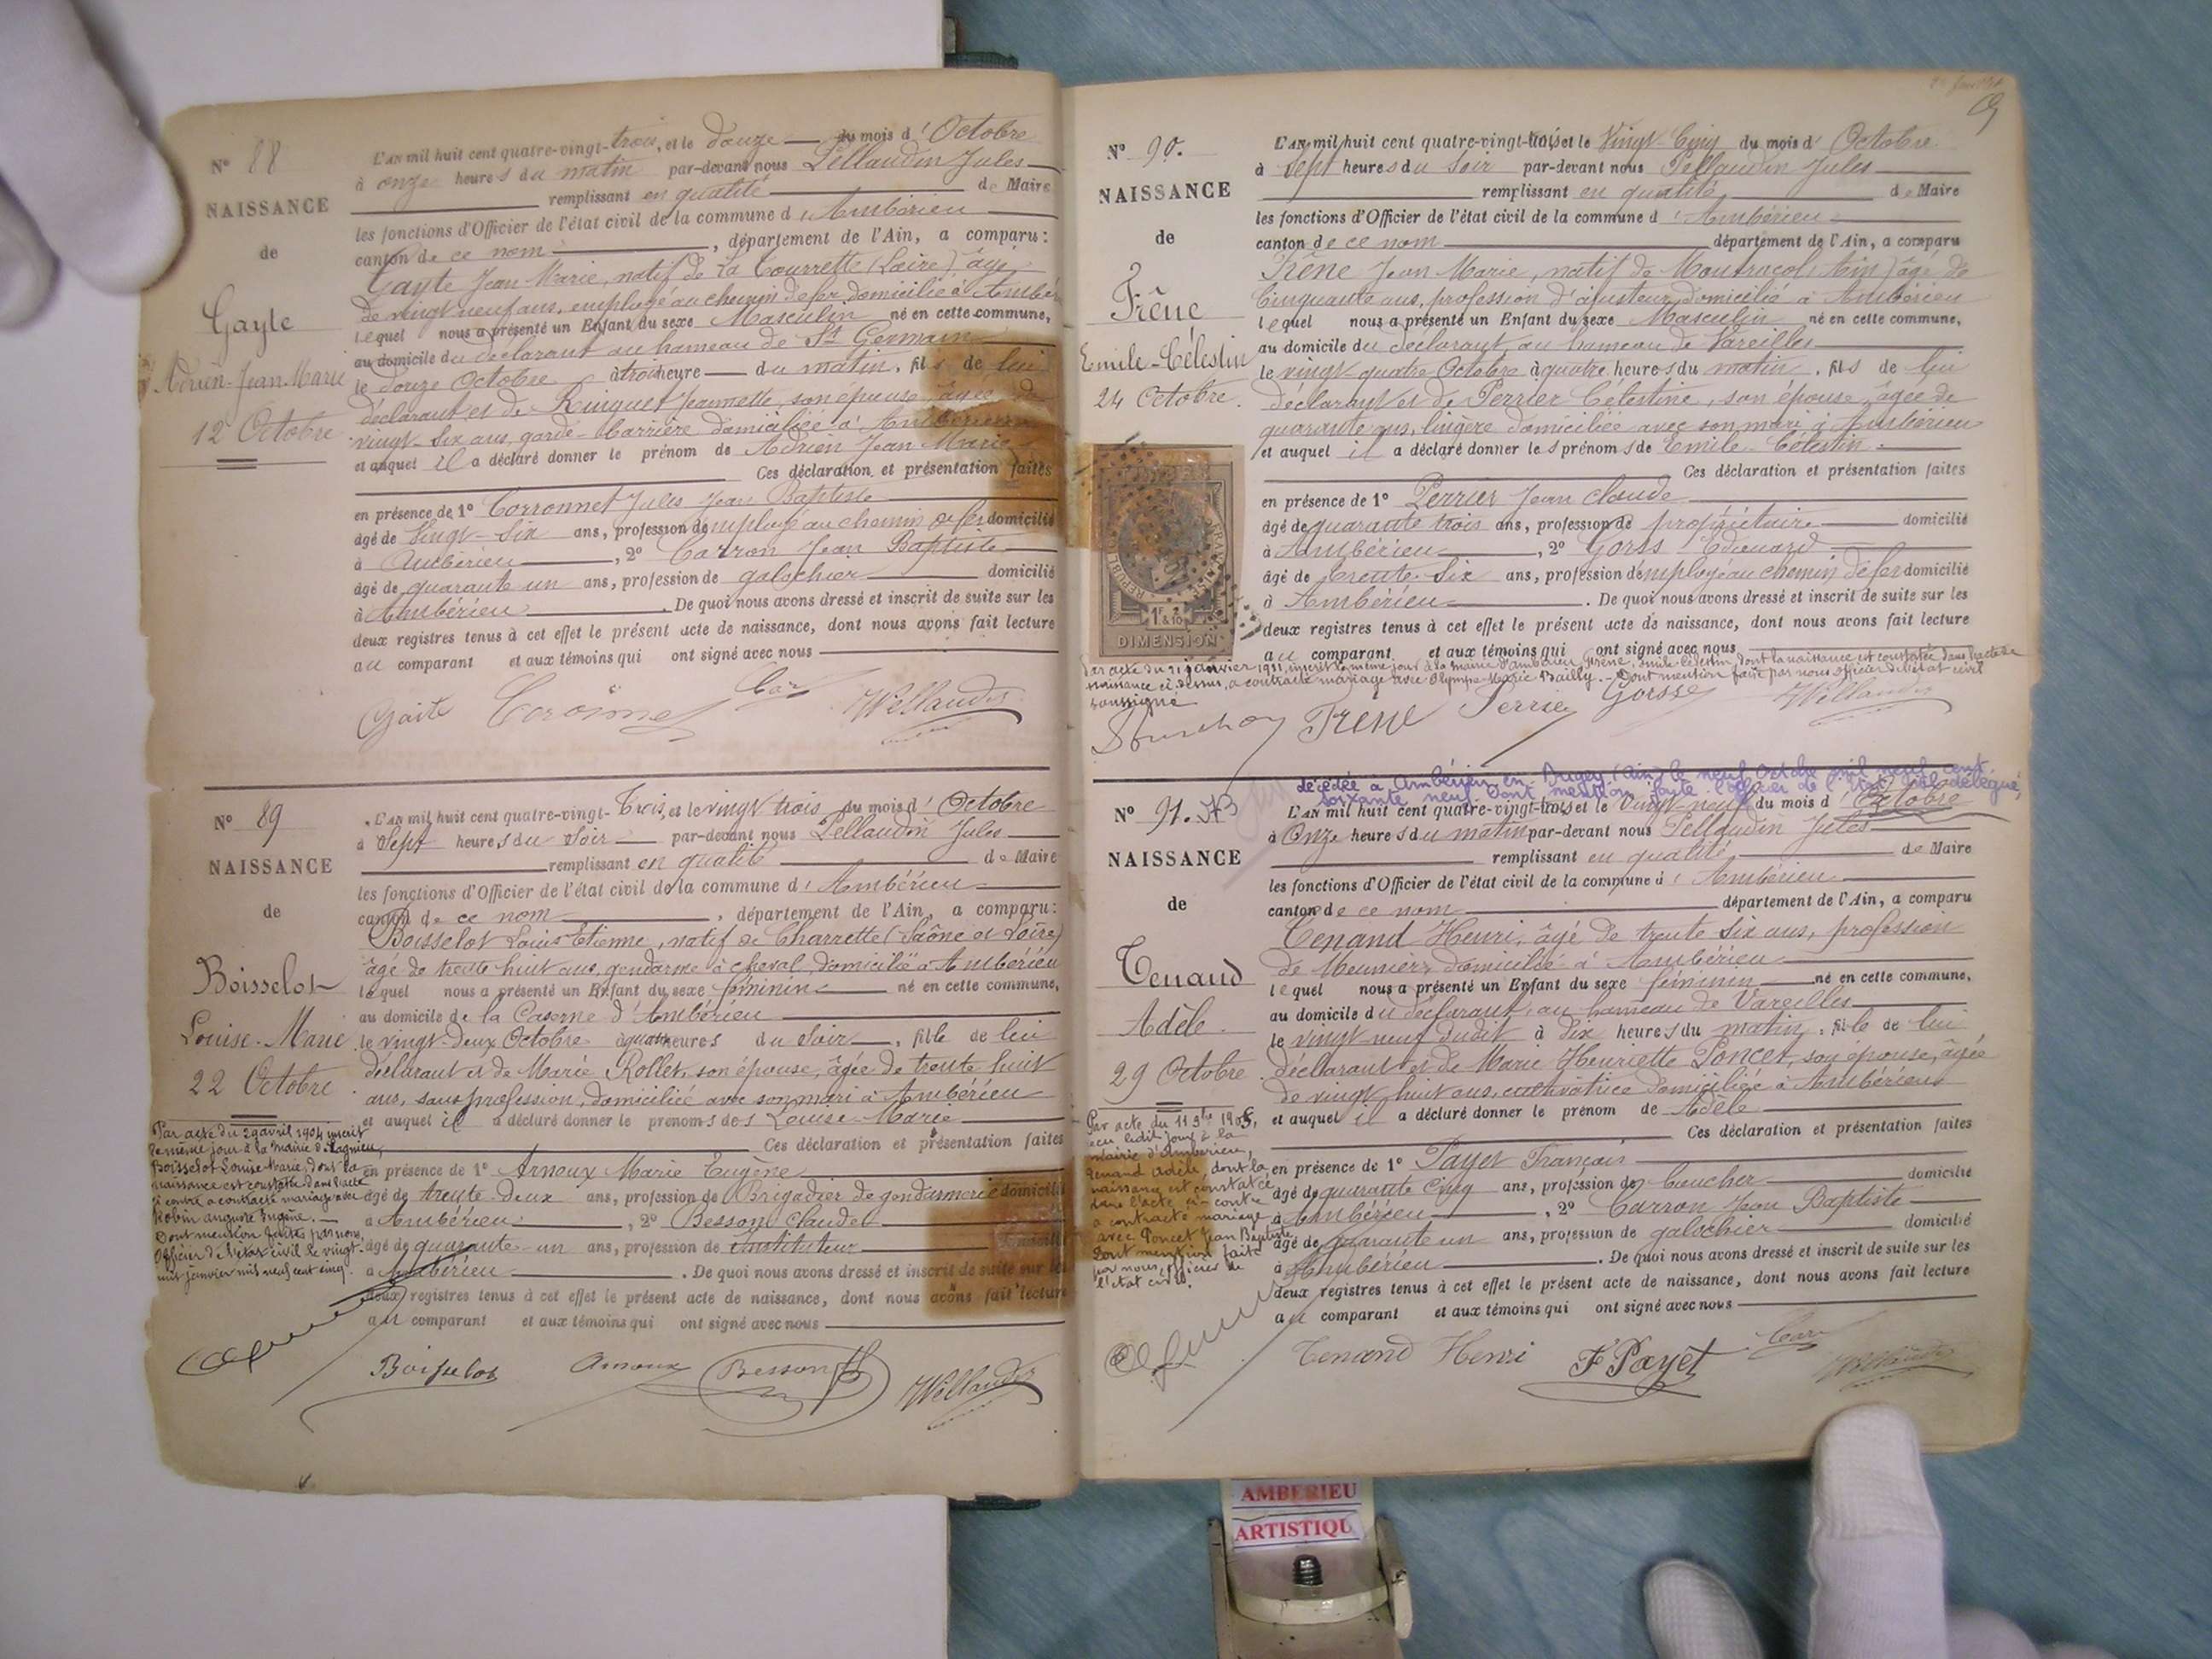 N° 88
NAISSANCE
de
Gayte
Adrien-Jean Marie
12 Octobre
L'AN mil huit cent quatre-vingt-trois, et le douze du mois d'Octobre
à onze heures du matin par-devant nous Pellaudin Jules
remplissant en qualité de Maire
les fonctions d'Officier de l'état civil de la commune d'Ambérieu
canton de ce nom, département de l'Ain, a comparu:
Gayte Jean Marie, natif de La Tourrette (Loire) âgé
de vingt neuf ans, employé au chemin de fer domicilié à Ambér
lequel nous a présenté un Enfant du sexe Masculin né en cette commune,
au domicile du déclarant au hameau de St Germain
le douze Octobre à trois heure du matin, fils de lui
déclarant et de Ruiguet Jeannette, son épouse, âgée de
vingt six ans, garde-barrière domiciliée à Ambérieu
et auquel il a déclaré donner le prénom de Adrien Jean Marie
Ces déclaration et présentation faites
en présence de 1° Corronnet Jules Jean Baptiste
âgé de Vingt-six ans, profession d'employé au chemin de fer domicilié
à Ambérieu, 2° Carron Jean Baptiste
âgé de quarante un ans, profession de galochier domicilié
à Ambérieu. De quoi nous avons dressé et inscrit de suite sur les
deux registres tenus à cet effet le présent acte de naissance, dont nous avons fait lecture
au comparant et aux témoins qui ont signé avec nous
Gaite Coronnet Car JPellaudin
N° 89
NAISSANCE
de
Boisselot
Louise-Marie
22 Octobre
Par acte du 29 avril 1904 inscrit
le même jour à la mairie de Lagnieu,
Boisselot Louise Marie, dont la
naissance est constatée dans l'acte
ci contre a contracté mariage avec
Robin auguste Eugène.
Dont mention faite par nous,
Officier de l'état civil le vingt
mis janvier mil neuf cent cinq.
L'AN mil huit cent quatre-vingt-Trois, et le vingt trois du mois d'Octobre
à Sept heures du Soir par-devant nous Pellaudin Jules
remplissant en qualité de Maire
les fonctions d'Officier de l'état civil de la commune d'Ambérieu
canton de ce nom, département de l'Ain, a comparu:
Boisselot Louis Etienne, natif de Charrette (Saône et Loire)
âgé de trente huit ans, gendarme à cheval, domicilié à Ambérieu
lequel nous a présenté un Enfant du sexe féminin né en cette commune,
au domicile de la Caserne d'Ambérieu
le vingt-deux Octobre à quatre heures du Soir, fille de lui
déclarant et de Marie Rollet, son épouse, âgée de trente huit
ans, sans profession, domiciliée avec son mari à Ambérieu
et auquel il a déclaré donner le prenoms des Louise-Marie
Ces déclaration et présentation faites
en présence de 1° Arnoux Marie Eugène
âgé de trente-deux ans, profession de Brigadier de gendarmerie domicilié
à Ambérieu, 2° Besson Claude
âgé de quarante-un ans, profession de Instituteur domicilié
à Ambérieu. De quoi nous avons dressé et inscrit de suite sur les
deux registres tenus à cet effet le présent acte de naissance, dont nous avons fait lecture
au comparant et aux témoins qui ont signé avec nous
Boisselot Arnoux Besson JPellaudin
N° 90.
NAISSANCE
de
Frêne
Emile-Célestin
24 Octobre.
L'AN mil huit cent quatre-vingt-trois et le Vingt-Cinq du mois d'Octobre
à Sept heures du Soir par-devant nous Pellaudin Jules
remplissant en qualité de Maire
les fonctions d'Officier de l'état civil de la commune d'Ambérieu
canton de ce nom département de l'Ain, a comparu
Frêne Jean Marie, natif de Montracol (Ain) âgé de
Cinquante ans, profession d'ajusteur domicilié à Ambérieu
lequel nous a présenté un Enfant du sexe Masculin né en cette commune,
au domicile du déclarant au hameau de Vareilles
le vingt-quatre Octobre à quatre heures du matin, fils de lui
déclarant et de Perrier Célestine, son épouse, âgée de
quarante ans, lingère domiciliée avec son mari à Ambérieu
et auquel il a déclaré donner les prénoms de Emile-Célestin.
Ces déclaration et présentation faites
en présence de 1° Perrier Jean Claude
âgé de quarante trois ans, profession de propriétaire domicilié
à Ambérieu, 2° Gorss Edouard
âgé de trente-six ans, profession d'employé au chemin de fer domicilié
à Ambérieu. De quoi nous avons dressé et inscrit de suite sur les
deux registres tenus à cet effet le présent acte de naissance, dont nous avons fait lecture
au comparant et aux témoins qui ont signé avec nous
RÉPUBLIQUE FRANÇAISE
1F & 2/10
DIMENSION
Par acte du 21 janvier 1911, inscrit le même jour à la mairie d'Ambérieu, Frêne, Emile Célestin, dont la naissance est constatée dans l'acte de
naissance ci-dessus, a contracté mariage avec Olympe Marie Bailly. - Dont mention faite par nous officier de l'état civil
soussigné
Frene Perrier Gorsse JPellaudin
décédée à Ambérieu en Bugey (Ain) le neuf Octobre mil neuf cent
soixante neuf. Dont mention faite. L'officier de l'état civil délégué,
N° 91.
NAISSANCE
de
Tenand
Adèle.
29 Octobre
Par acte du 11 9bre 1905,
reçu ledit jour à la
mairie d'Ambérieu,
Tenand Adèle, dont la
naissance est constatée
dans l'acte ci-contre
a contracté mariage
avec Poncet Jean Baptiste
Dont mention faite
par nous, officier de
l'état civil.
L'AN mil huit cent quatre-vingt-trois et le Vingt-neuf du mois d'Octobre
à Onze heures du matin par-devant nous Pellaudin Jules
remplissant en qualité de Maire
les fonctions d'Officier de l'état civil de la commune d'Ambérieu
canton de ce nom département de l'Ain, a comparu
Tenand Henri, âgé de trente six ans, profession
de Meunier, domicilié à Ambérieu
lequel nous a présenté un Enfant du sexe féminin né en cette commune,
au domicile du déclarant, au hameau de Vareilles
le vingt neuf dudit à dix heures du matin, fille de lui
déclarant et de Marie Henriette Poncet, son épouse, âgée
de vingt huit ans, cultivatrice domiciliée à Ambérieu
et auquel il a déclaré donner le prénom de Adèle
Ces déclaration et présentation faites
en présence de 1° Payet Français
âgé de quarante Cinq ans, profession de boucher domicilié
à Ambérieu, 2° Carron Jean Baptiste
âgé de quarante un ans, profession de galochier domicilié
à Ambérieu. De quoi nous avons dressé et inscrit de suite sur les
deux registres tenus à cet effet le présent acte de naissance, dont nous avons fait lecture
au comparant et aux témoins qui ont signé avec nous
Tenand Henri F Payet Carr JPellaudin
AMBERIEU
ARTISTIQU